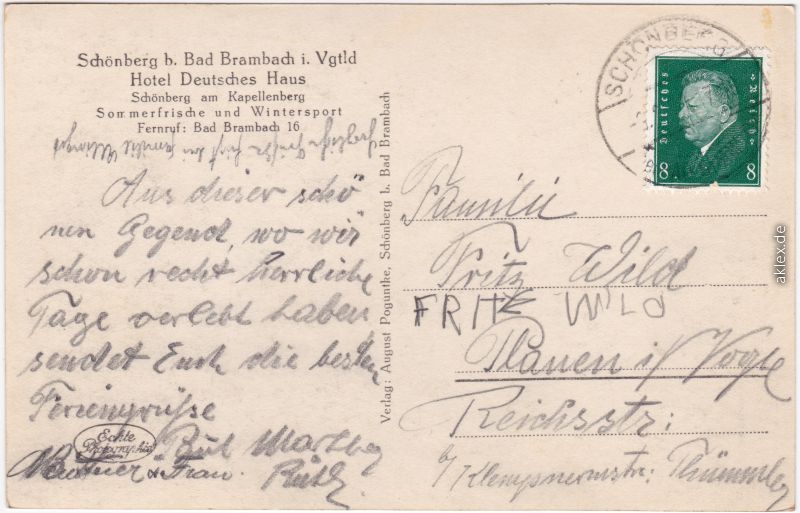 Schönberg b. Bad Brambach i. Vgtld
Hotel Deutsches Haus
Schönberg am Kapellenberg
Sommerfrische und Wintersport
Fernruf: Bad Brambach 16
Aus dieser schö
nen Gegend, wo wir
schon recht herrliche
Tage verlebt haben
sendet Euch die besten
Feriengrüße
Ruth
u. Frau.
Echte
Photographie
Verlag: August Poguntke, Schönberg b. Bad Brambach
SCHÖNBERG
Deutsches Reich
8 8
Familie
Fritz Wild
FRITZ WILD
Plauen i/ Vogtl
Reichsstr:
b/ Klempnermstr: Thümmler
aklex.de